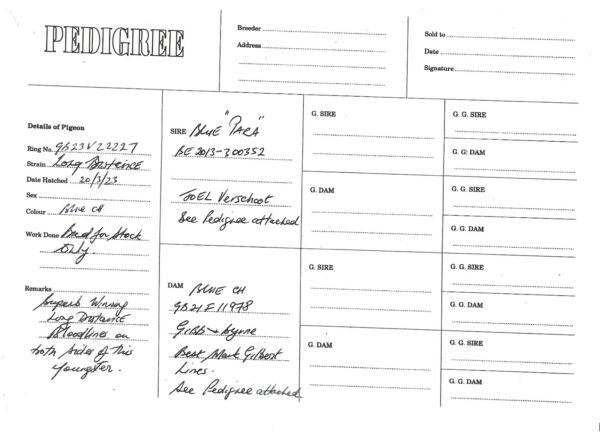 PEDIGREE
Breeder
Address
Sold to
Date
Signature
Details of Pigeon
Ring No. GB23V22227
Strain Long Distance
Date Hatched 20/3/23
Sex
Colour Blue CH
Work Done Bred for Stock
Only
Remarks
Superb Winning
Long Distance
Bloodlines on
both sides of this
youngster.
SIRE BLUE "PACA"
BE 2013-300352
JOEL Verschoot
See Pedigree attached
DAM BLUE CH
GB21F11978
Gibb & Byrne
Best Mark Gilbert
Lines.
See Pedigree attached
G. SIRE
G. DAM
G. SIRE
G. DAM
G. G. SIRE
G. G. DAM
G. G. SIRE
G. G. DAM
G. G. SIRE
G. G. DAM
G. G. SIRE
G. G. DAM